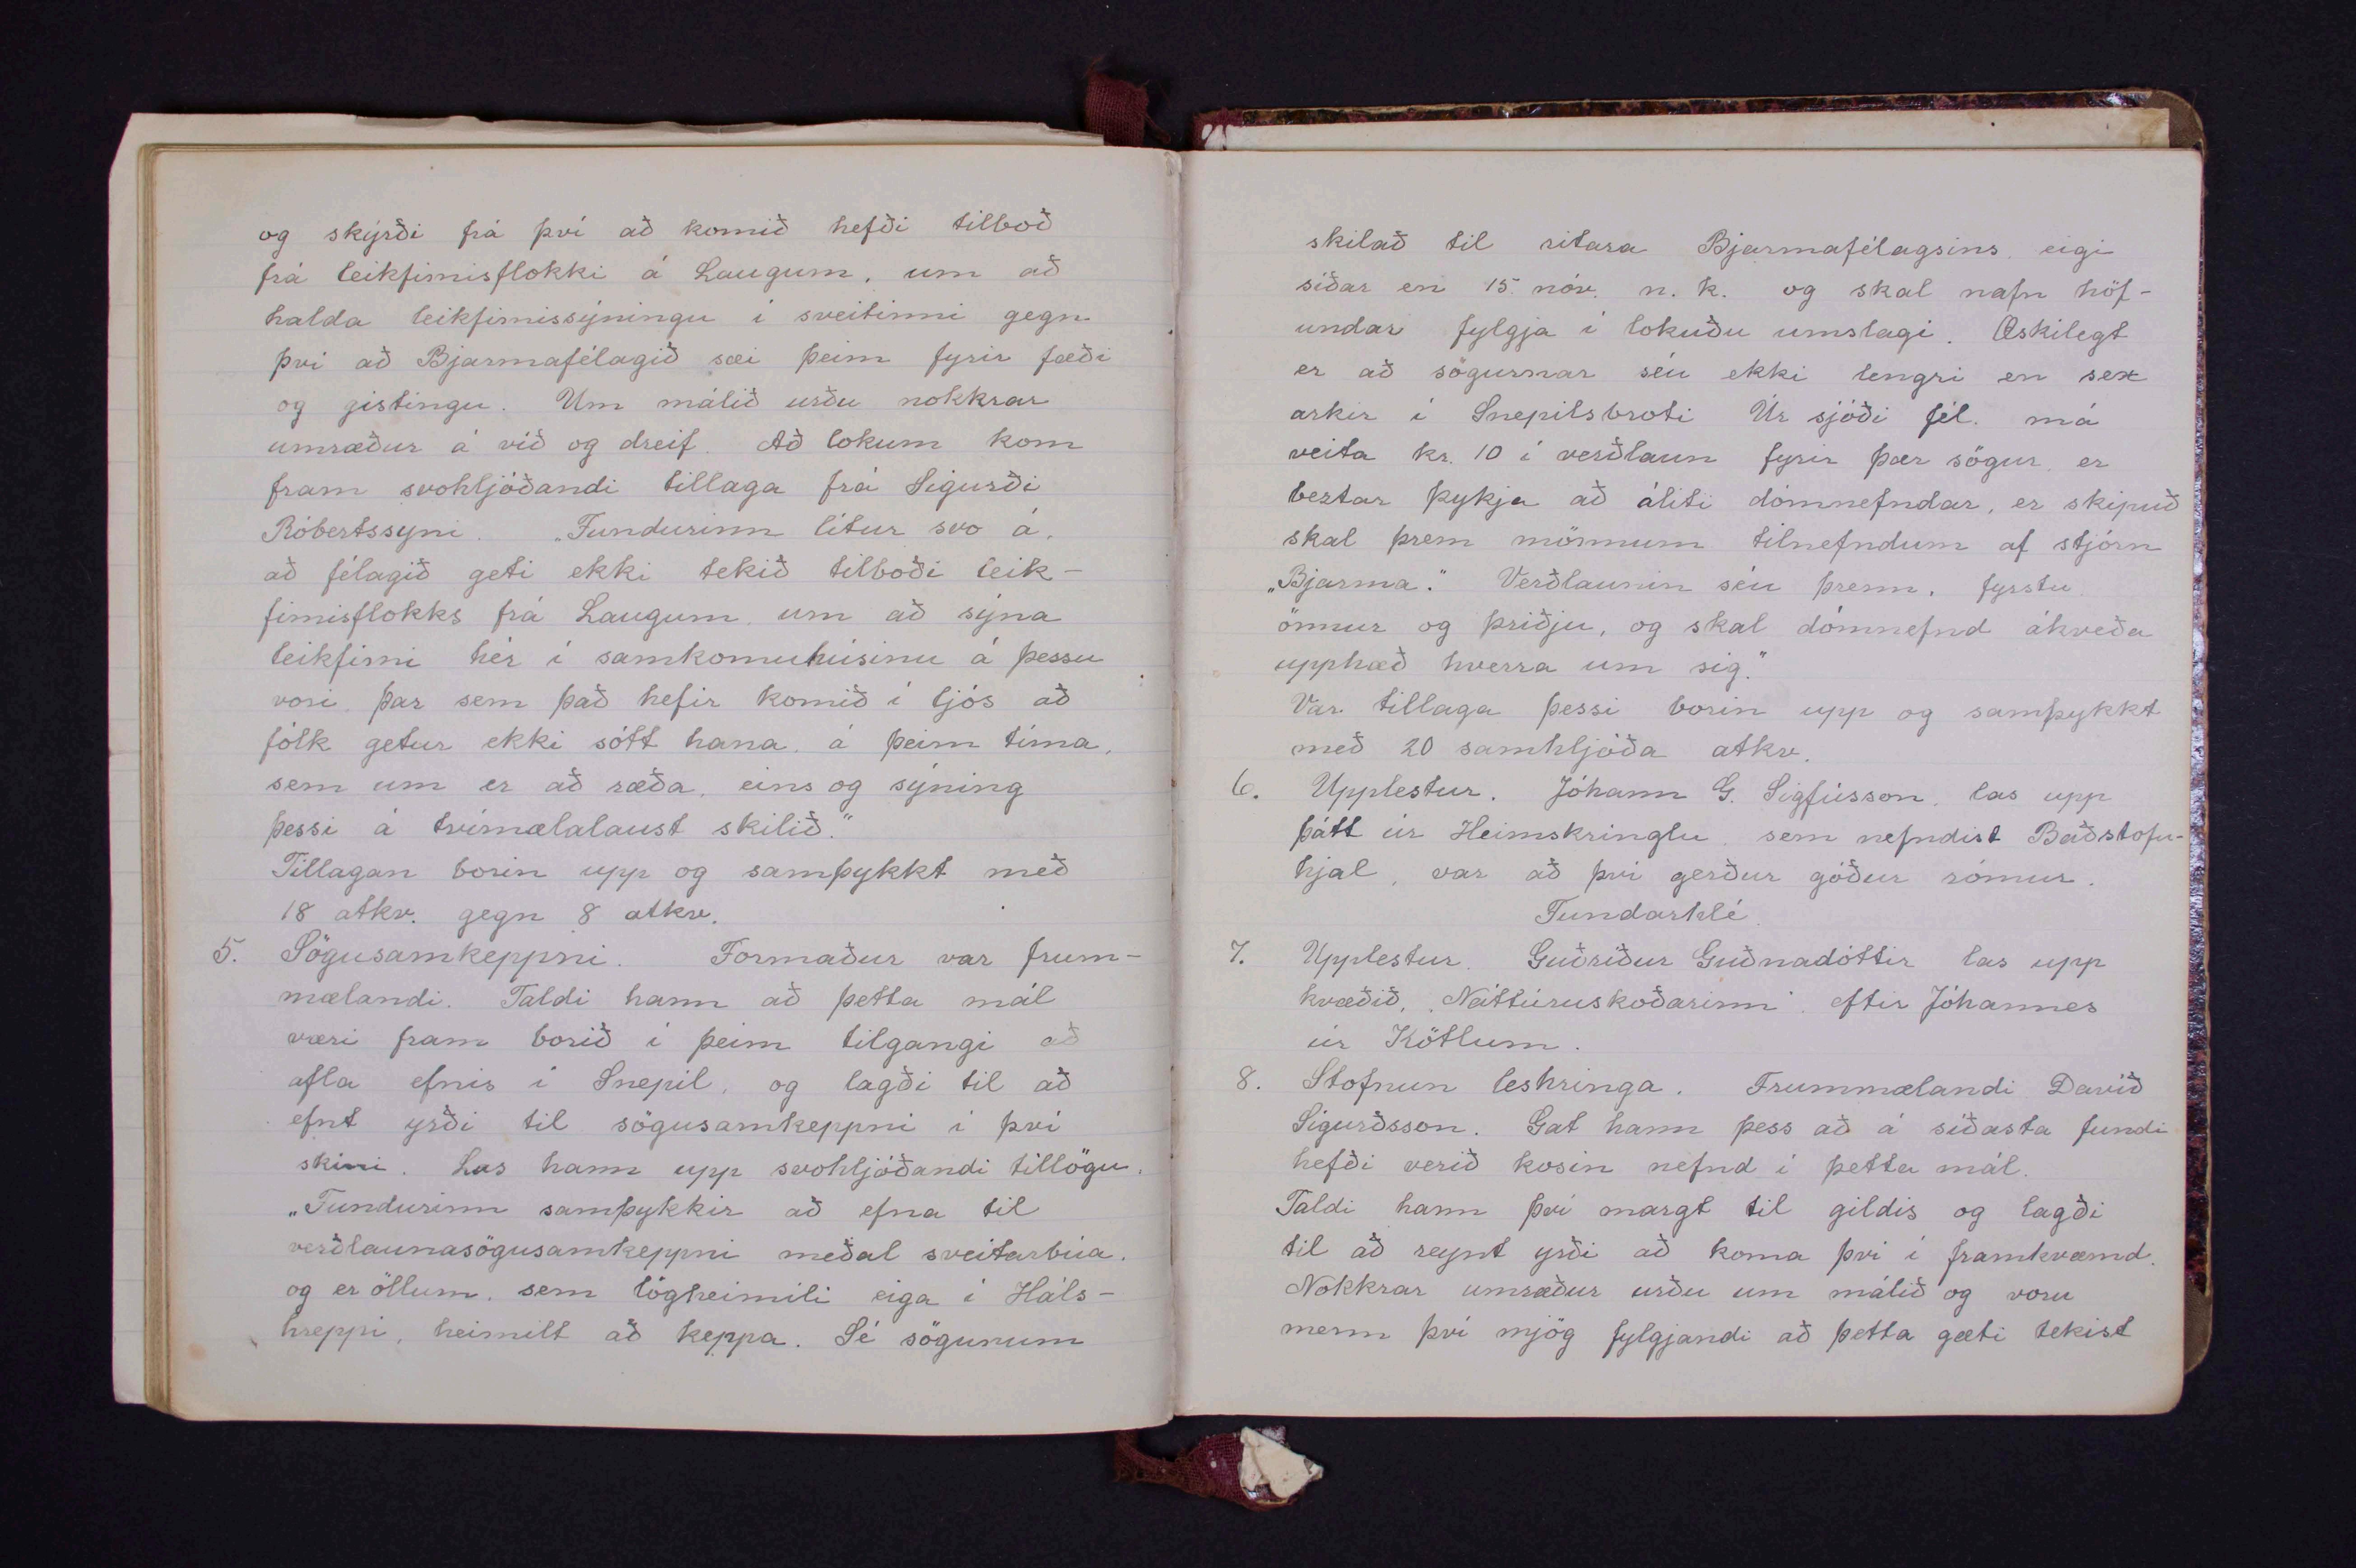 og skýrði frá því að komið hefði tilboð
frá leikfimisflokki á Laugum, um að
halda leikfimissýningu í sveitinni gegn
því að Bjarmafélagið sæi þeim fyrir fæði
og gistingu. Um málið urðu nokkrar
umræður á víð og dreif. Að lokum kom
fram svohljóðandi tillaga frá Sigurði
Róbertssyni. „Fundurinn lítur svo á,
að félagið geti ekki tekið tilboði leik-
fimisflokks frá Laugum, um að sýna
leikfimi hér í samkomuhúsinu á þessu
vori, þar sem það hefir komið í ljós að
fólk getur ekki sótt hana, á þeim tíma,
sem um er að ræða, eins og sýning
þessi á tvímælalaust skilið.“
Tillagan borin upp og samþykkt með
18 atkv. gegn 8 atkv.
5. Sögusamkeppni. Formaður var frum-
mælandi. Taldi hann að þetta mál
væri fram borið í þeim tilgangi að
afla efnis í Snepil, og lagði til að
efnt yrði til sögusamkeppni í því
skini. Las hann upp svohljóðandi tillögu.
„Fundurinn samþykkir að efna til
verðlaunasögusamkeppni meðal sveitarbúa.
og er öllum, sem lögheimili eiga í Háls-
hreppi, heimilt að keppa. Sé sögunum
skilað til ritara Bjarmafélagsins, eigi
síðar en 15. nóv. n. k. og skal nafn höf-
undar fylgja í lokuðu umslagi. Æskilegt
er að sögurnar séu ekki lengri en sex
arkir í Snepilsbroti Úr sjóði fél. má
veita kr. 10 í verðlaun fyrir þær sögur, er
beztar þykja að áliti dómnefndar, er skipuð
skal þrem mönnum tilnefndum af stjórn
„Bjarma.“ Verðlaunin séu þrenn, fyrstu,
önnur og þriðju, og skal dómnefnd ákveða
upphæð hverra um sig.“
Var tillaga þessi borin upp og samþykkt
með 20 samhljóða atkv.
6. Upplestur. Jóhann G. Sigfússon, las upp
þátt úr Heimskringlu, sem nefndist Baðstofu-
hjal, var að því gerður góður rómur.
Fundarhlé.
7. Upplestur. Guðríður Guðnadóttir las upp
kvæðið, „Náttúruskoðarinn“. eftir Jóhannes
úr Kötlum.
8. Stofnun leshringa. Frummælandi Davíð
Sigurðsson. Gat hann þess að á síðasta fundi
hefði verið kosin nefnd í þetta mál.
Taldi hann því margt til gildis og lagði
til að reynt yrði að koma því í framkvæmd.
Nokkrar umræður urðu um málið og voru
menn því mjög fylgjandi að þetta gæti tekist